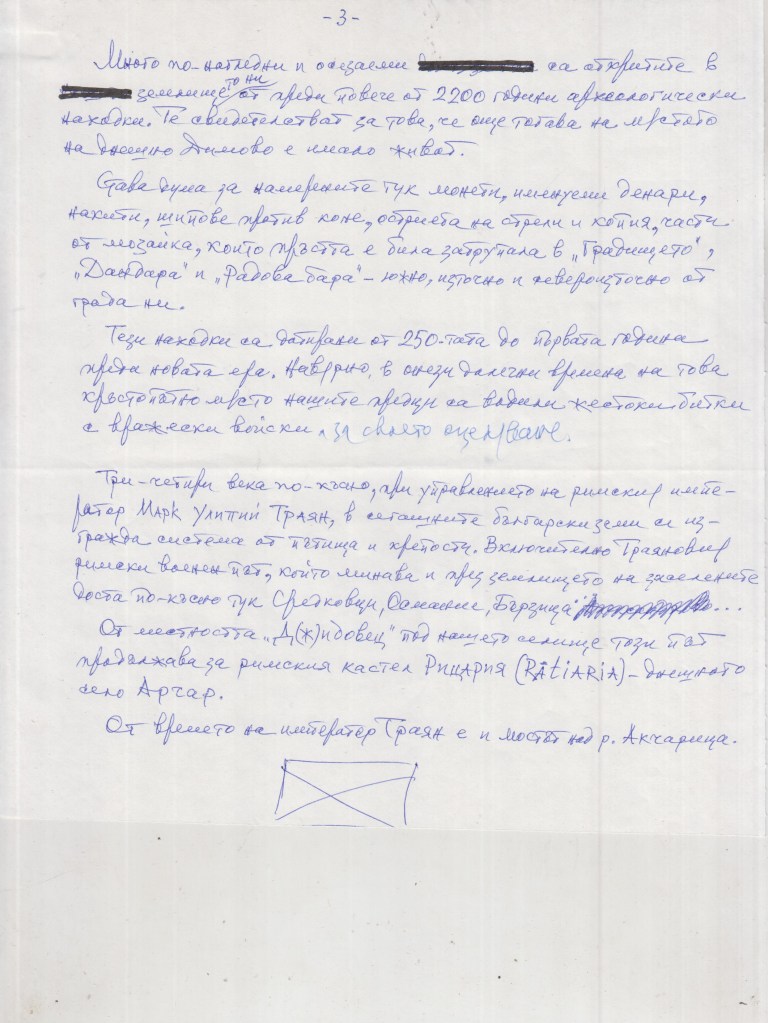 - 3 -
Много по-нагледни и осезаеми са откритите в
землището ни от преди повече от 2200 години археологически
находки. Те свидетелстват за това, че още тогава на мястото
на днешно Димово е имало живот.
Става дума за намерените тук монети, именуеми денари,
накити, шипове против коне, остриета на стрели и копия, части
от мозайка, които пръстта е била затрупала в „Градището",
„Данбара" и „Радова бара" – южно, източно и североизточно от
града ни.
Тези находки са датирани от 250-тата до първата година
преди новата ера. Навярно, в онези далечни времена на това
кръстопътно място нашите предци са водили жестоки битки
с вражески войски за своето оцеляване.
Три-четири века по-късно, при управлението на римския импе-
ратор Марк Улпий Траян, в сегашните български земи се из-
гражда система от пътища и крепости. Включително Траяновия
римски военен път, който минава и през землището на заселените
доста по-късно тук Средковци, Османие, Бързица ...
От местността „Д(ж)идовец" под нашето селище този път
продължава за римския кастел Рицария (RAtiARiA) – днешното
село Арчар.
От времето на император Траян е и мостът над р. Акчарица.